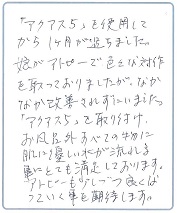 「アクアス5」を使用して
から1ヶ月が過ちました。
娘がアトピーで色々な対作
を取っておりましたが、なか
なか改善されずにいました。
「アクアス5」を取り付け、
お風呂外すべての蛇口に
肌に優しい水が流れる
事にとても満足しております。
アトピーも少しづつ良くな
っていく事を期待します。